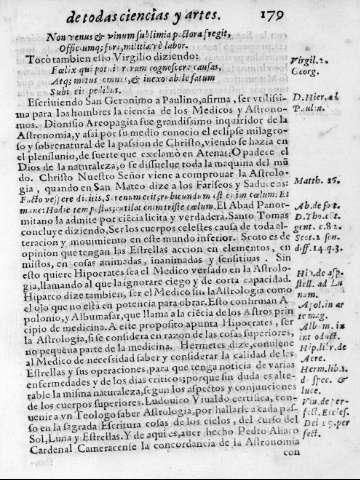 de todas ciencias y artes. 179
Non venus & vinum sublimia pectora fregit,
Officiumq; fori, militiæ ve labor.
Tocò tambien esto Virgilio diziendo:
Fœlix qui potuit rerum cognoscere causas,
Atq; metus omnes, & inexorabile fatum
Subiecit pedibus.
Escriuiendo San Geronimo a Paulino, afirma, ser vtilissima
para los hombres la ciencia de los Medicos y Astronomos.
Dionisio Areopagita fue grandissimo inquiridor de la
Astronomia, y assi por su medio conocio el eclipse milagroso
y sobrenatural de la passion de Christo, viendo se hazia en
el plenilunio, de suerte que exclamò en Atenas; O padece el
Dios de la naturaleza, o se dissuelue toda la maquina del mũdo.
Christo Nuestro Señor viene a comprouar la Astrologia,
quando en San Mateo dize a los Fariseos y Saduceos:
Facto vespere dicitis, Serenum erit, rubicundum est enim cœlum: Et
mane: Hodie tempestas, rutilat enim triste cœlum. El Abad Panormitano
la admite por ciẽcia licita y verdadera. Santo Tomas
concluye diziendo, Ser los cuerpos celestes causa de toda alteracion
y mouimiento en este mundo inferior. Scoto es de
opinion que tengan las Estrellas accion en elementos, en
mistos, en cosas animadas, inanimadas y sensitiuas. Sin
esto quiere Hipocrates sea el Medico versado en la Astrologia,
llamando al que la ignorare ciego y de corta capacidad.
Hiparco dize tambien, ser el Medico sin la Astrologia como
el ojo que no està en potencia para obrar. Esto confirman Apolonio,
y Albumasar, que llama a la ciẽcia de los Astros principio
de medicina. A este proposito apunta Hipocrates, ser
la Astrologia, si se considera en razon de las cosas superiores,
no pequeña parte de la medicina. Hermetes dize, conuiene
al Medico de necessidad saber y considerar la calidad de las
Estrellas y sus operaciones, para que tenga noticia de varias
enfermedades y de los dias criticos; porque sin duda es alterable
la misma naturaleza, segun los aspectos y conjunciones
de los cuerpos superiores. Ludouico Viualdo certifica, conuenir
a vn Teologo saber Astrologia, por hallarse a cada passo
en la sagrada Escritura cosas de los cielos, del curso del
Sol, Luna y Estrellas. Y de aqui es, auer hecho Pedro Aliaco
Cardenal Cameracense la concordancia de la Astronomia
con
Virgil. 2.
Georg.
D. Hier. ad
Paulin.
Matth. 16.
D. Tho. 1.
diff. 14. q. 3.
Hip. de
Aere.
Herm. lib. 1.
luce.